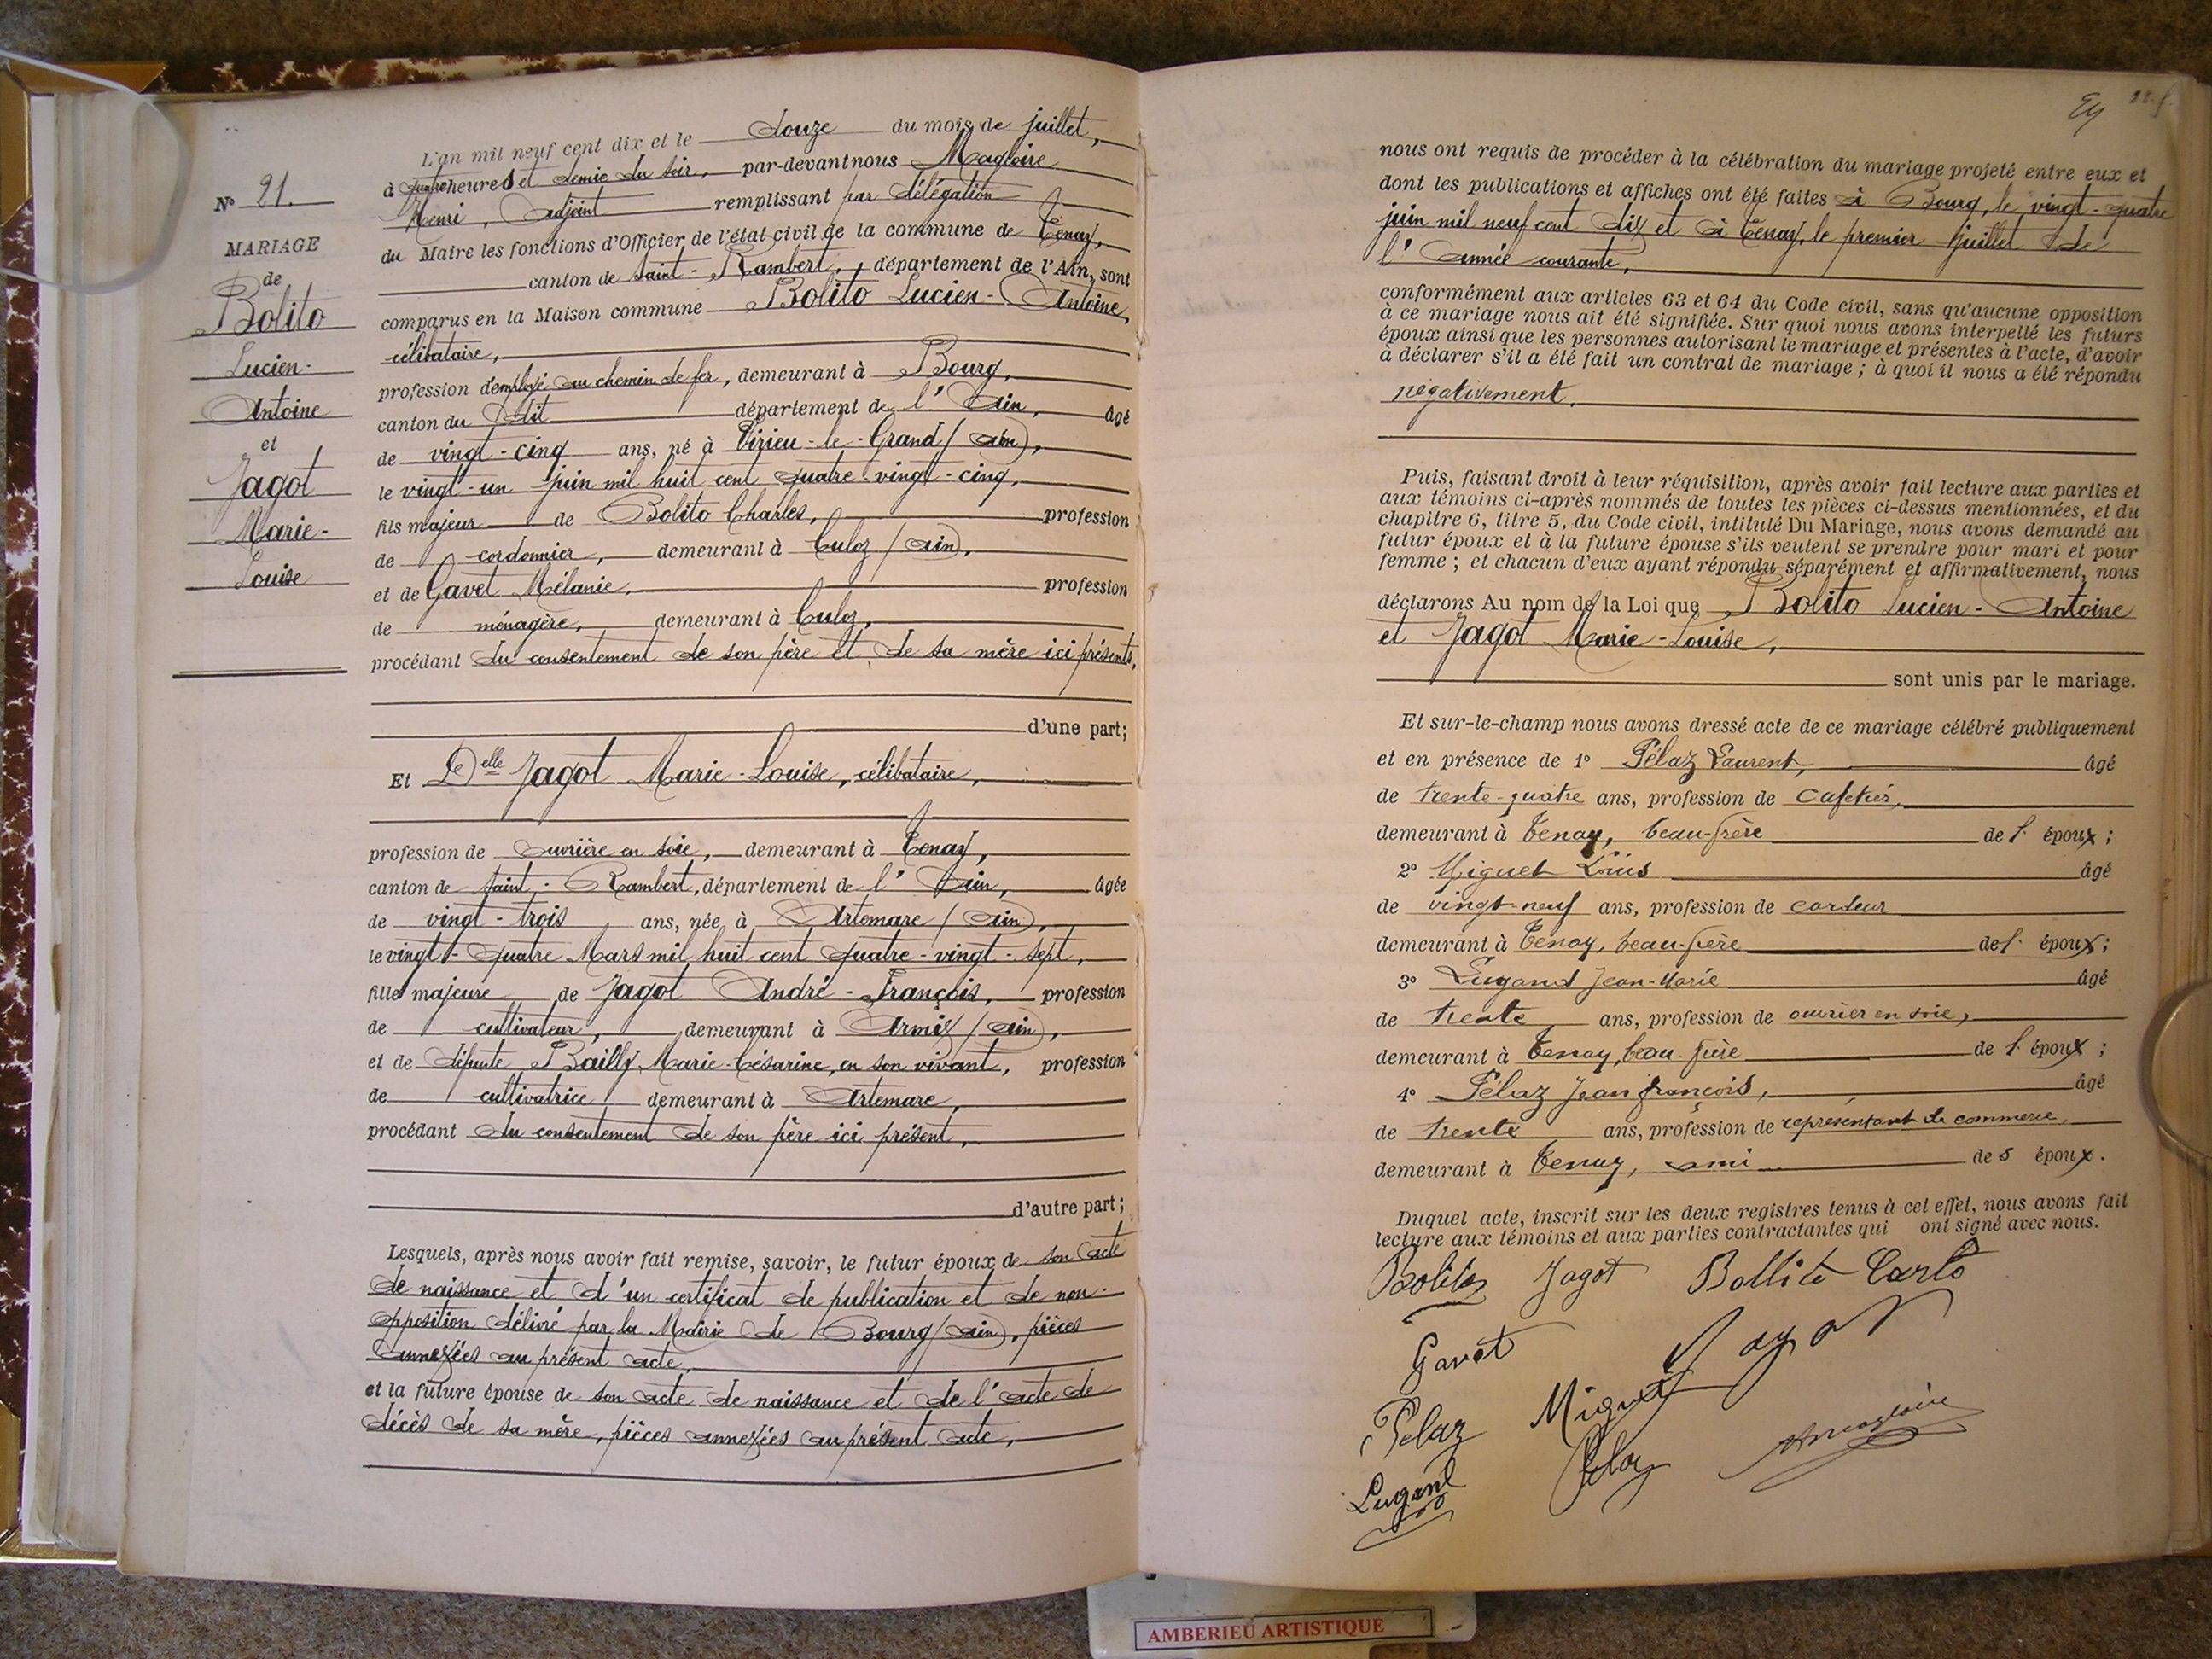 L'an mil neuf cent dix et le douze du mois de juillet,
à quatre heures et demie du soir, par-devant nous Magloire
Henri, Adjoint remplissant par délégation
du Maire les fonctions d'Officier de l'état civil de la commune de Tenay,
canton de Saint-Rambert, département de l'Ain, sont
comparus en la Maison commune Bolito Lucien-Antoine,
célibataire,
profession d'employé au chemin de fer, demeurant à Bourg,
canton du dit département de l'Ain, âgé
de vingt-cinq ans, né à Virieu-le-Grand (Ain),
le vingt-un juin mil huit cent quatre-vingt-cinq,
fils majeur de Bolito Charles, profession
de cordonnier, demeurant à Culoz (Ain),
et de Gavet Mélanie, profession
de ménagère, demeurant à Culoz,
procédant du consentement de son père et de sa mère ici présents,
d'une part;
Et Delle Jagot Marie-Louise, célibataire,
profession de ouvrière en soie, demeurant à Tenay,
canton de Saint-Rambert, département de l'Ain, âgée
de vingt-trois ans, née à Artemare (Ain),
le vingt-quatre Mars mil huit cent quatre-vingt-sept,
fille majeure de Jagot André-François, profession
de cultivateur, demeurant à Armix (Ain),
et de défunte Bailly Marie-Césarine, en son vivant, profession
de cultivatrice demeurant à Artemare,
procédant du consentement de son père ici présent,
d'autre part;
Lesquels, après nous avoir fait remise, savoir, le futur époux de son acte
de naissance et d'un certificat de publication et de non-
opposition délivré par la Mairie de Bourg (Ain), pièces
annexées au présent acte,
et la future épouse de son acte de naissance et de l'acte de
décès de sa mère, pièces annexées au présent acte,
No 21.
MARIAGE
de
Bolito
Lucien-
Antoine
et
Jagot
Marie-
Louise
nous ont requis de procéder à la célébration du mariage projeté entre eux et
dont les publications et affiches ont été faites à Bourg, le vingt-quatre
juin mil neuf cent dix et à Tenay, le premier juillet de
l'année courante,
conformément aux articles 63 et 64 du Code civil, sans qu'aucune opposition
à ce mariage nous ait été signifiée. Sur quoi nous avons interpellé les futurs
époux ainsi que les personnes autorisant le mariage et présentes à l'acte, d'avoir
à déclarer s'il a été fait un contrat de mariage ; à quoi il nous a été répondu
négativement.
Puis, faisant droit à leur réquisition, après avoir fait lecture aux parties et
aux témoins ci-après nommés de toutes les pièces ci-dessus mentionnées, et du
chapitre 6, titre 5, du Code civil, intitulé Du Mariage, nous avons demandé au
futur époux et à la future épouse s'ils veulent se prendre pour mari et pour
femme ; et chacun d'eux ayant répondu séparément et affirmativement, nous
déclarons Au nom de la Loi que Bolito Lucien-Antoine
et Jagot Marie-Louise,
sont unis par le mariage.
Et sur-le-champ nous avons dressé acte de ce mariage célébré publiquement
et en présence de 1° Pélaz Laurent, âgé
de trente-quatre ans, profession de cafetier,
demeurant à Tenay, beau-frère de l' époux ;
2° Miguet Louis âgé
de vingt-neuf ans, profession de cardeur
demeurant à Tenay, beau-frère de l' époux ;
3° Lugand Jean-Marie âgé
de trente ans, profession de ouvrier en soie,
demeurant à Tenay, beau-frère de l' époux ;
4° Pélaz Jean françois, âgé
de trente ans, profession de représentant de commerce,
demeurant à Tenay, ami de s époux.
Duquel acte, inscrit sur les deux registres tenus à cet effet, nous avons fait
lecture aux témoins et aux parties contractantes qui ont signé avec nous.
Bolito Jagot Bollito Carlo
Gavet Jagot
Pelaz Miguet
Lugand Pelaz Hmagloire
AMBERIEU ARTISTIQUE